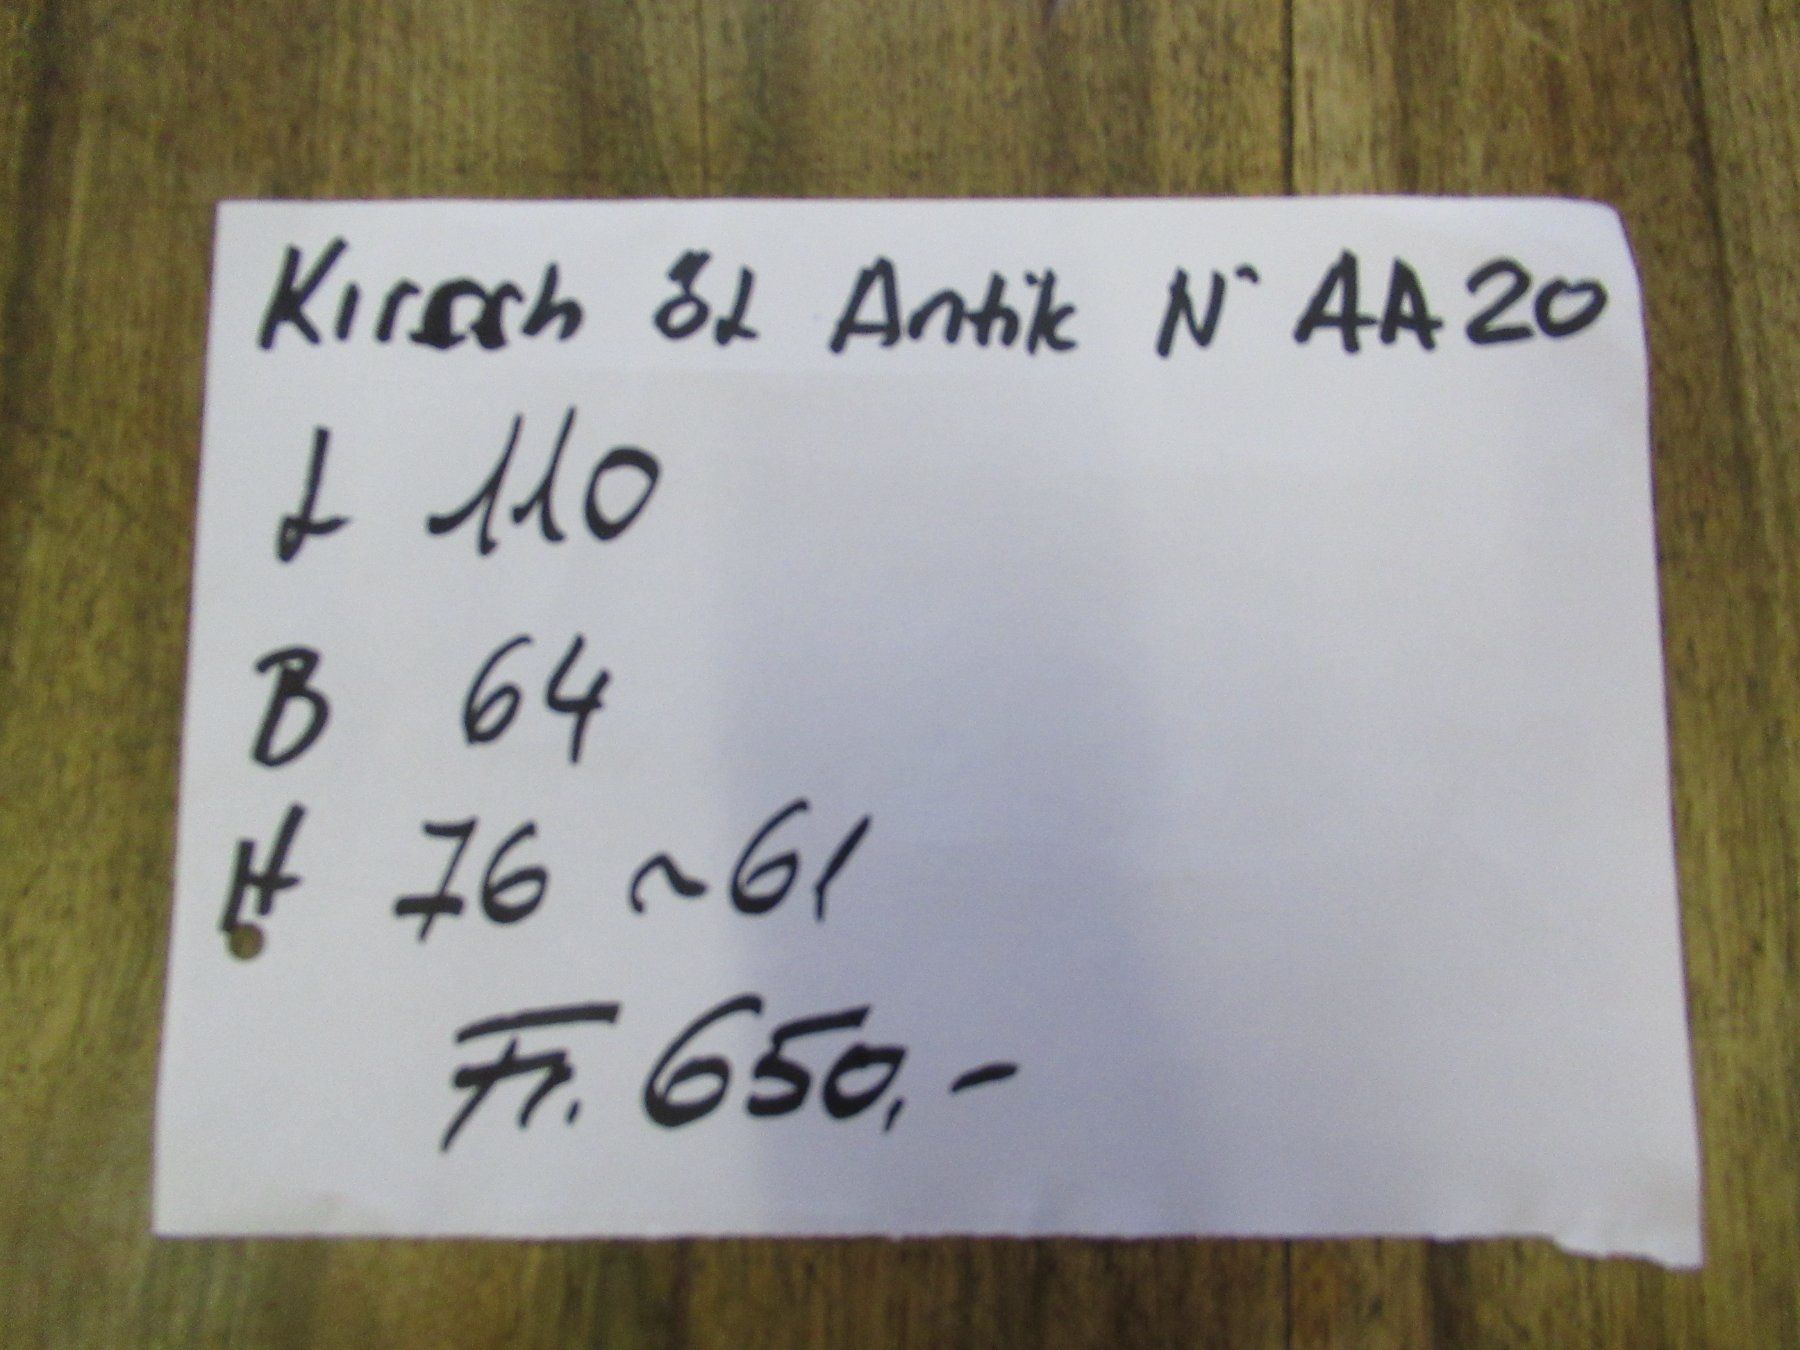 Kirsch öL Antik N° AA20
L 110
B 64
H 76 ~61
Fr. 650,-